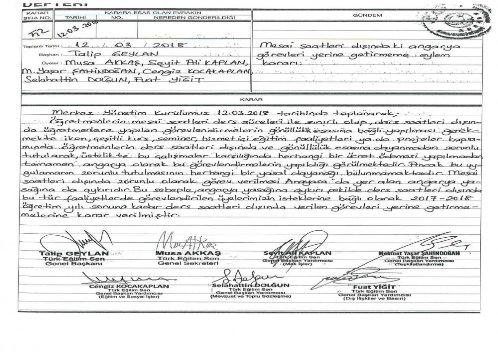 DEFTERİ
KARAR SIRA NO. TARİHİ KARARA ESAS OLAN EVRAKIN NO. NEREDEN GÖNDERİLDİĞİ GÜNDEM
12.03.2018
Toplantı Tarihi : 12 / 03 / 2018
Başkan : Talip GEYLAN
Üyeler : Musa AKKAŞ, Seyit Ali KAPLAN,
M. Yaşar ŞAHİNDOĞAN, Cengiz KOCAKAPLAN,
Selahattin DOLĞUN, Fuat YİĞİT
Mesai saatleri dışındaki angarya
görevleri yerine getirmeme eylem
kararı.
KARAR
Merkez Yönetim Kurulumuz 12.03.2018 tarihinde toplanarak;
Öğretmenlerin mesai saatleri ders görevleri ile sınırlı olup, ders saatleri dışın-
da öğretmenlere yapılan görevlendirmelerin gönüllülük esasına bağlı yapılması gerek-
mekte iken, çeşitli kurs, seminer, hizmetiçi eğitim faaliyetleri ya da projeler kapsa-
mında öğretmenlerin ders saatleri dışında ve gönüllülük esasına dayanmadan sorumlu
tutularak, üstelik te bu çalışmalar karşılığında herhangi bir ücret ödemesi yapılmadan
tamamen angarya olarak bu görevlendirmelerin yapıldığı görülmektedir. Ancak bu uy-
gulamanın zorunlu tutulmasının herhangi bir yasal dayanağı bulunmamaktadır. Mesai
saatleri dışında zorunlu olarak görev verilmesi Anayasa'da yer alan angarya ya-
sağına da aykırıdır. Bu sebeple, angarya yasağına aykırı şekilde ders saatleri dışında
bu tür faaliyetlerde görevlendirilen üyelerimizin isteklerine bağlı olarak 2017-2018
öğretim yılı sonuna kadar ders saatleri dışında verilen görevleri yerine getirme-
melerine karar verilmiştir.
Talip GEYLAN Musa AKKAŞ Seyit Ali KAPLAN Mehmet Yaşar ŞAHİNDOĞAN
Türk Eğitim Sen Türk Eğitim Sen Türk Eğitim Sen Türk Eğitim Sen
Genel Başkanı Genel Sekreteri Genel Başkan Yardımcısı Genel Başkan Yardımcısı
(Mali İşler) (Teşkilatlandırma)
Cengiz KOCAKAPLAN Selahattin DOLĞUN Fuat YİĞİT
Türk Eğitim Sen Türk Eğitim Sen Türk Eğitim Sen
Genel Başkan Yardımcısı Genel Başkan Yardımcısı Genel Başkan Yardımcısı
(Eğitim ve Sosyal İşler) (Mevzuat ve Toplu Sözleşme) (Dış İlişkiler ve Basın)